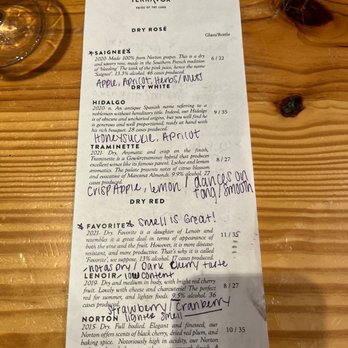 TERRAVOX
VOICE OF THE LAND
DRY ROSÉ
Glass/Bottle
*SAIGNEE*
6 / 22
2020 Made 100% from Norton grapes. This is a dry
and savory rosé, made in the Southern French tradition
of 'bleeding'. The tank of the pink juice, hence the name
"Saignee". 13.3% alcohol, 46 cases produced.
Apple, Apricot, Herbs/Nuts
DRY WHITE
HIDALGO
9 / 35
2020 n. An antique Spanish name referring to a
nobleman without hereditary title. Indeed, our Hidalgo
is of obscure and uncharted origins, but you will find it
a generous and well proportioned, ready at hand with
his rich bouquet. 28 cases produced.
Honeysuckle, Apricot
TRAMINETTE
8 / 27
2021- Dry. Aromatic and crisp on the finish,
Traminette is a Gewürztraminer hybrid that produces
excellent wine like its famous parent. Lychee and lemon
aromatics. The palate presents notes of citrus blossom
and essence of Marcona Almonds. 9.9% alcohol. 27
cases produced.
Crisp Apple, lemon / dances on
tong/smooth
DRY RED
*FAVORITE* smell is Great!
11 / 35
2021- Dry. Favorite is a daughter of Lenoir and
resembles it a great deal in terms of appearance of
both the vine and the fruit. However, it is more disease
resistant, and more productive. That's why it is called
'Favorite', we suppose. 13% alcohol. 17 cases
produced.
not as Dry / Dark Cherry taste
LENOIR- / low content
8 / 27
2019. Dry and medium in body, with bright red cherry
fruit. Lovely with cheese and charcuterie. The perfect
red for summer, and lighter foods. 9.5% alcohol. 36
cases produced.
Strawberry / Cranberry
NORTON lighter smell
10 / 35
2015 Dry. Full bodied. Elegant and finessed, our
Norton offers scents of black cherry, dried red plum, and
baking spice. Notoriously high in acidity, our Norton